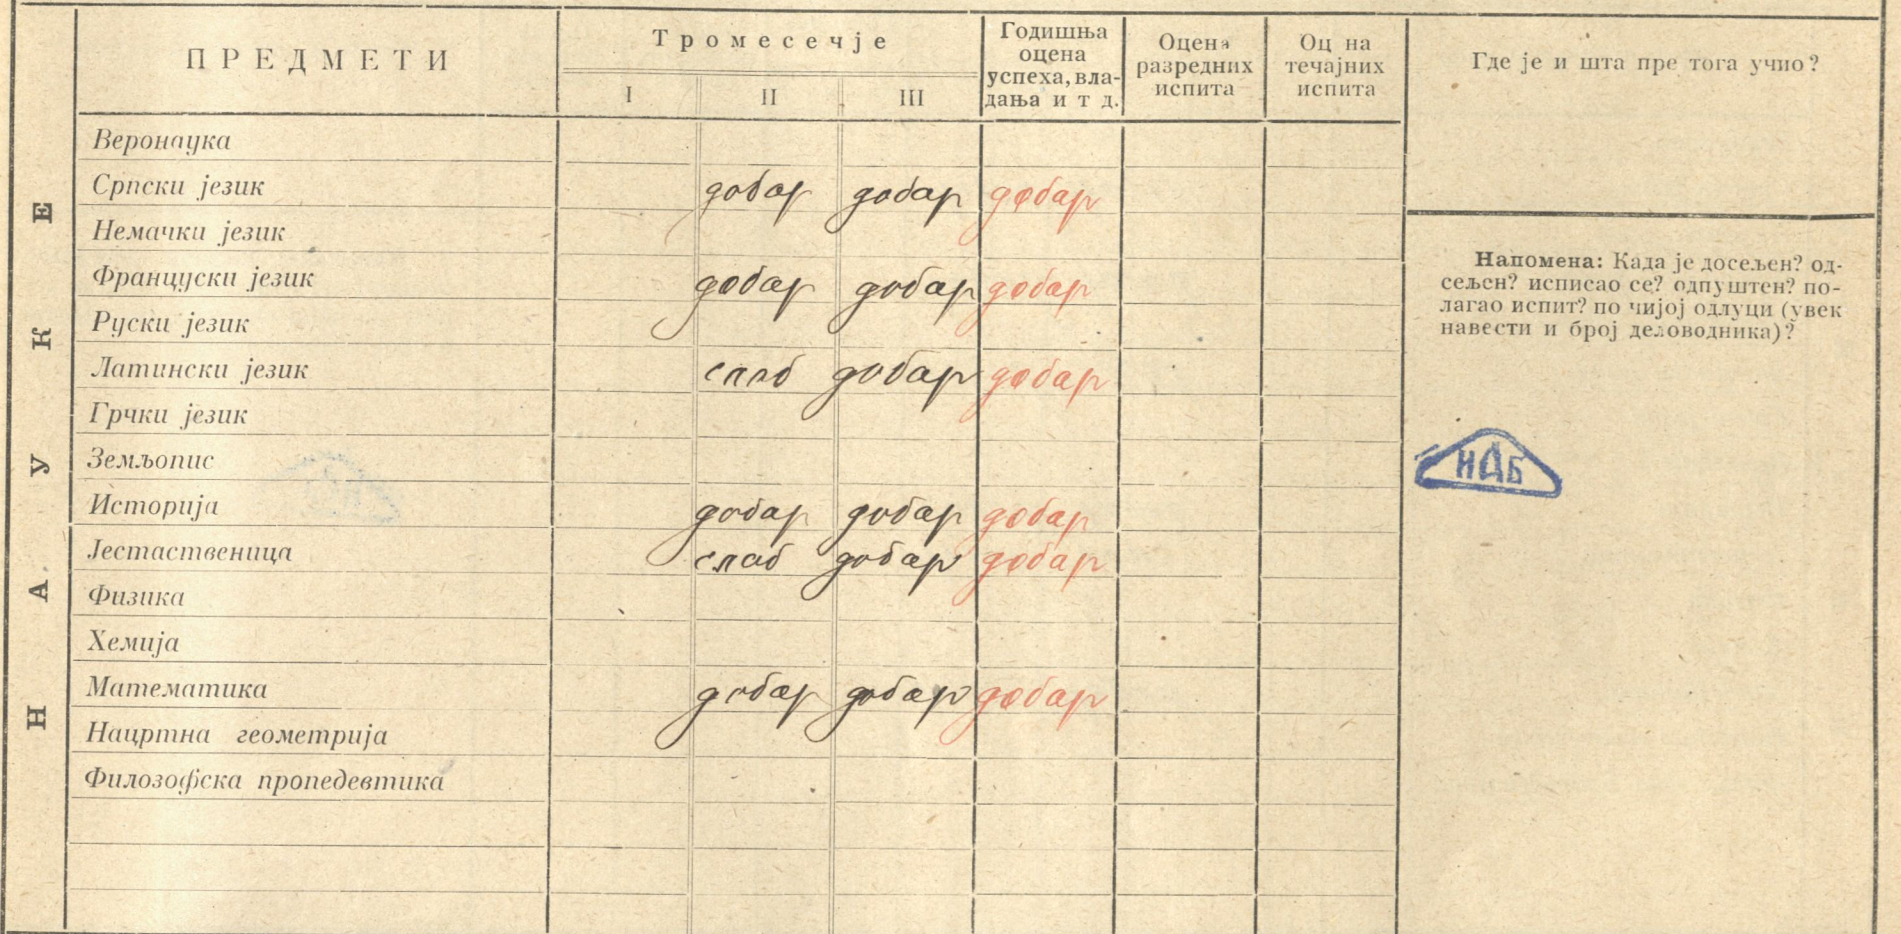 ПРЕДМЕТИ
Тромесечје
I II III
Годишња
оцена
успеха, вла-
дања и т д.
Оцена
разредних
испита
Оц на
течајних
испита
Где је и шта пре тога учио?
НАУКЕ
Веронаука
Српски језик добар добар добар
Немачки језик
Француски језик добар добар добар
Руски језик
Латински језик слаб добар добар
Грчки језик
Земљопис
Историја добар добар добар
Јестаственица слаб добар добар
Физика
Хемија
Математика добар добар добар
Нацртна геометрија
Филозофска пропедевтика
Напомена: Када је досељен? од-
сељен? исписао се? одпуштен? по-
лагао испит? по чијој одлуци (увек
навести и број деловодника)?
НДБ